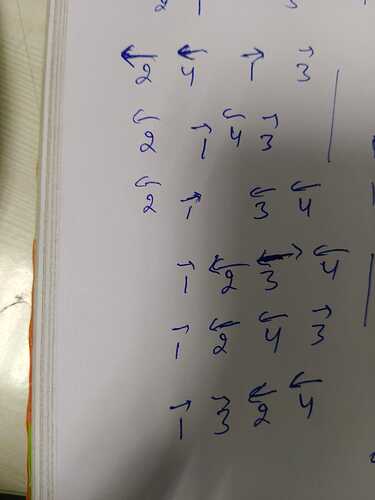 2 1 3
2⃖ 4⃖ 1⃗ 3⃗
2⃖ 1⃗ 4⃖ 3⃗
2⃖ 1⃗ 3⃖ 4⃖
1⃗ 2⃖ 3⃡ 4⃖
1⃗ 2⃖ 4⃖ 3⃗
1⃗ 3⃗ 2⃖ 4⃖